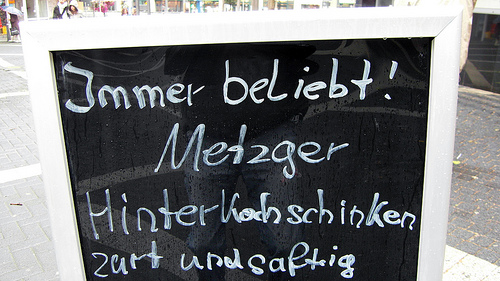 Immer beliebt!
Metzger
Hinterkochschinken
zart und saftig